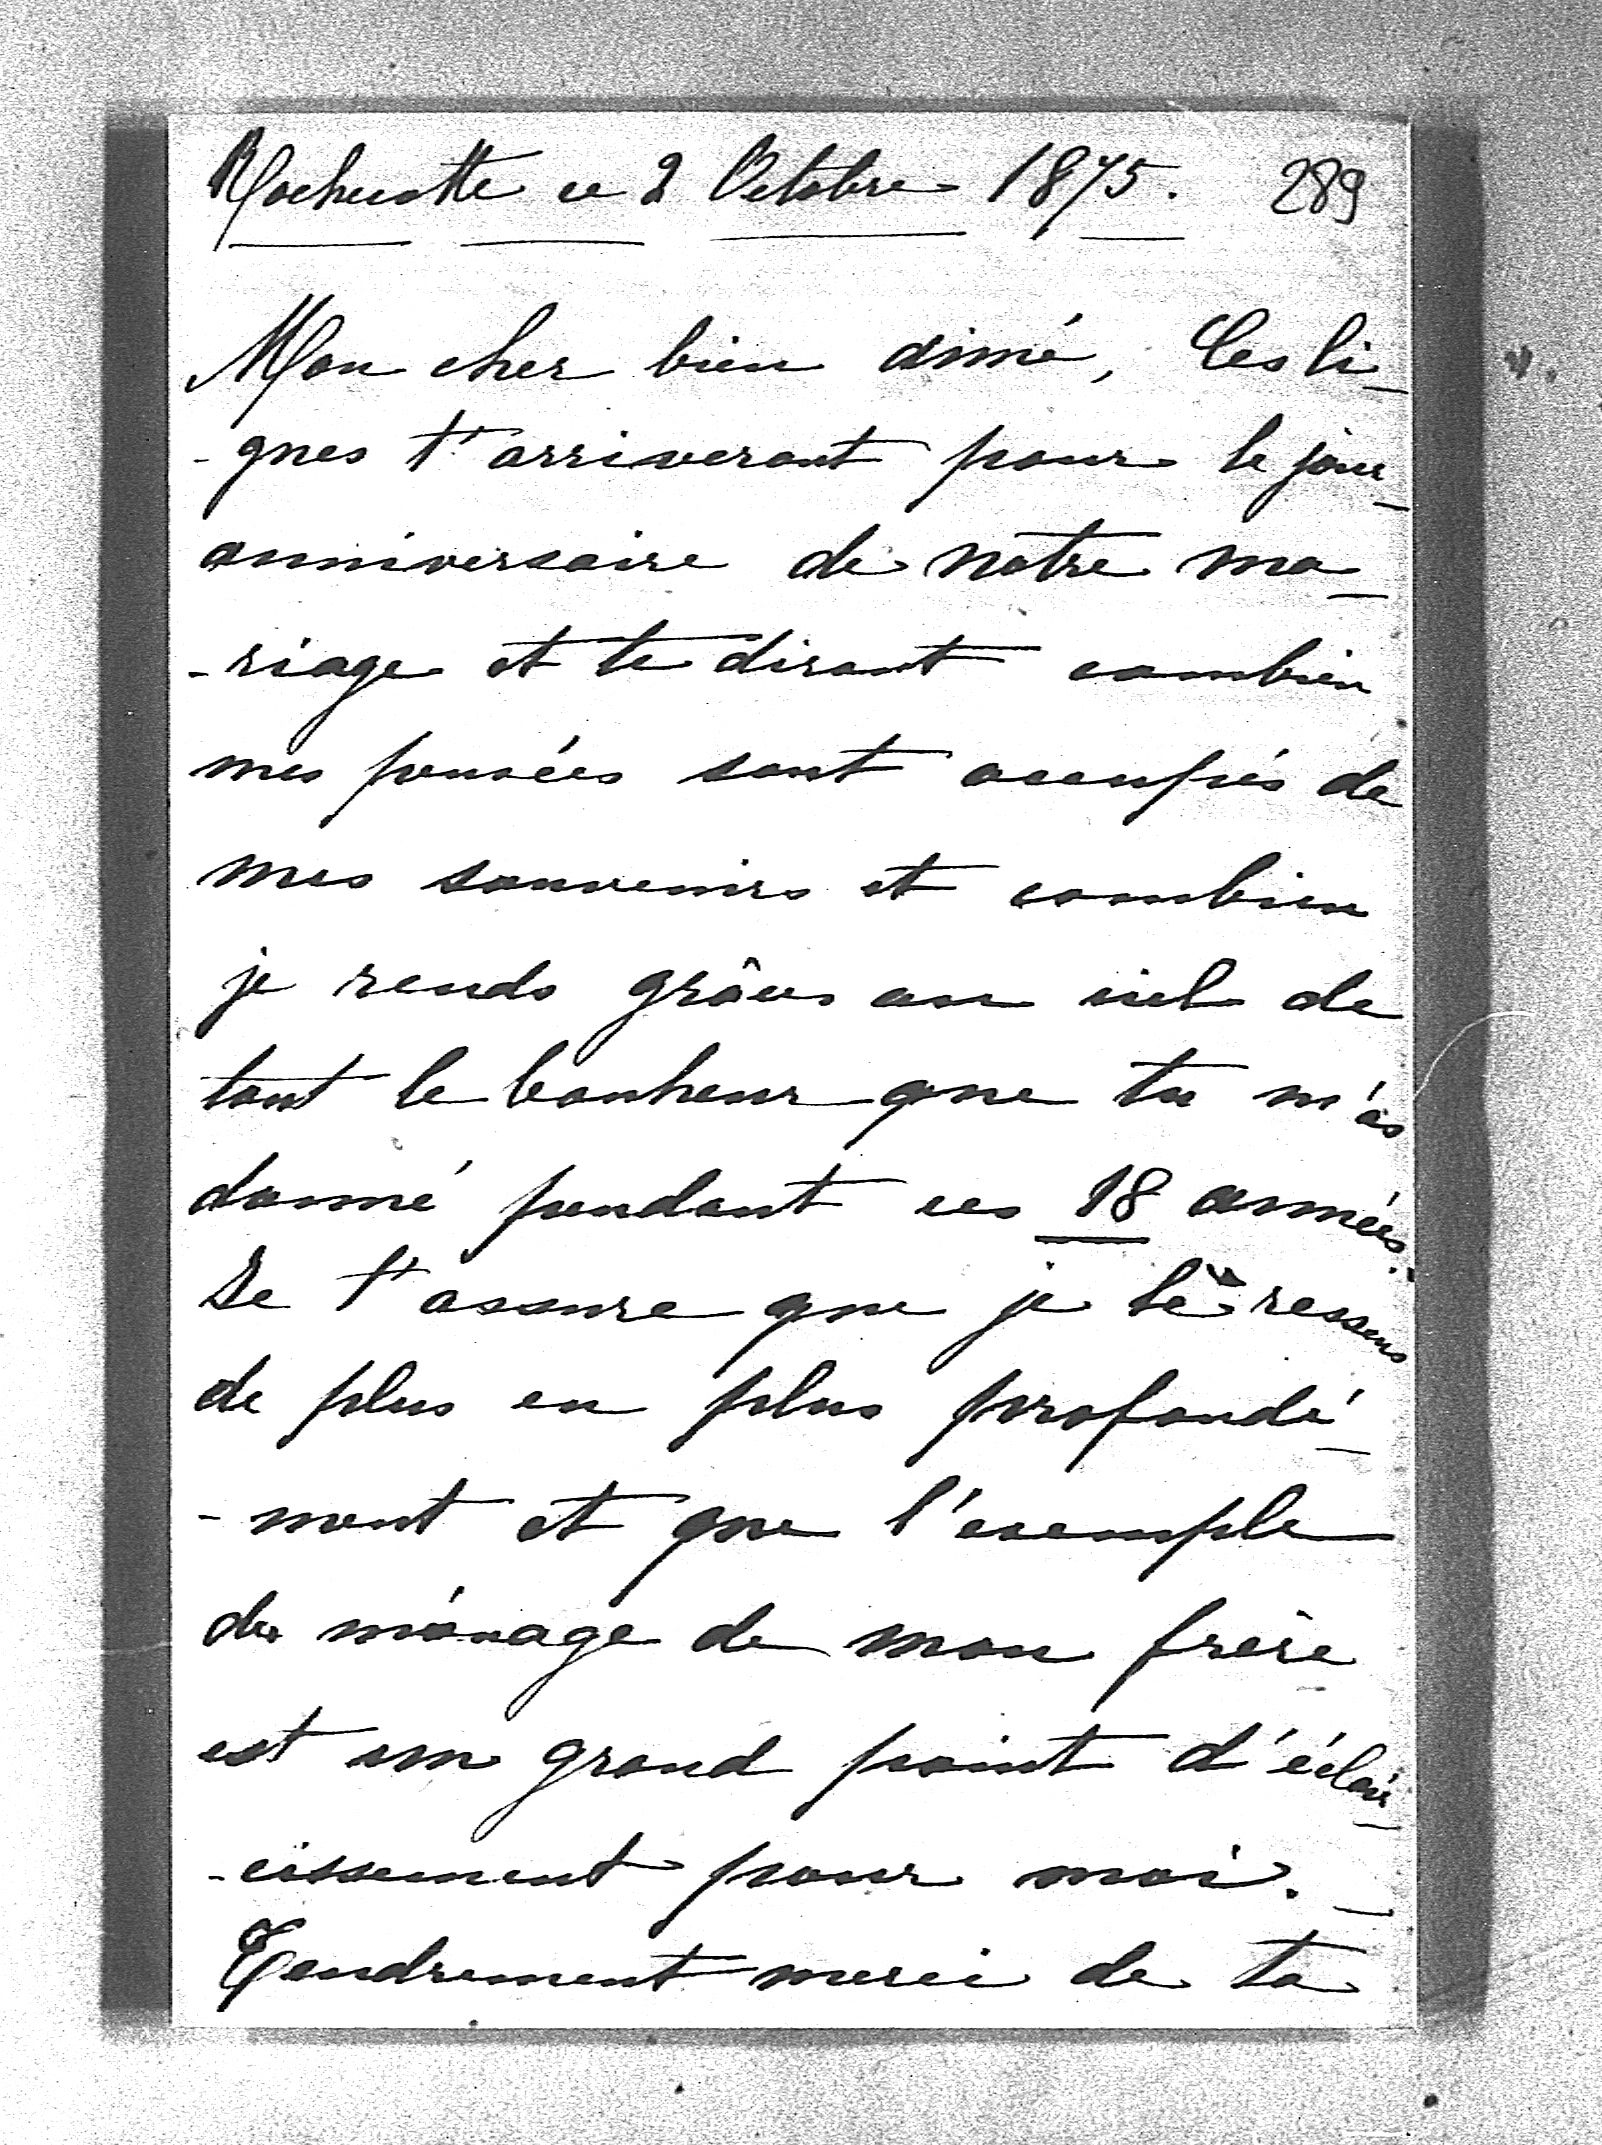 Rochecotte ce 2 Octobre 1875. 289
Mon cher bien aimé, Ces li-
-gnes t'arriveront pour le jour-
anniversaire de notre ma-
-riage et te diront combien
mes pensées sont occupés de
mes souvenirs et combien
je rends grâces au ciel de
tout le bonheur que tu m'as
donné pendant ces 18 années.
Je t'assure que je le ressens
de plus en plus profondé-
-ment et que l'exemple
du ménage de mon frère
est un grand point d'éclair-
-cissement pour moi. -
Tendrement merci de ta